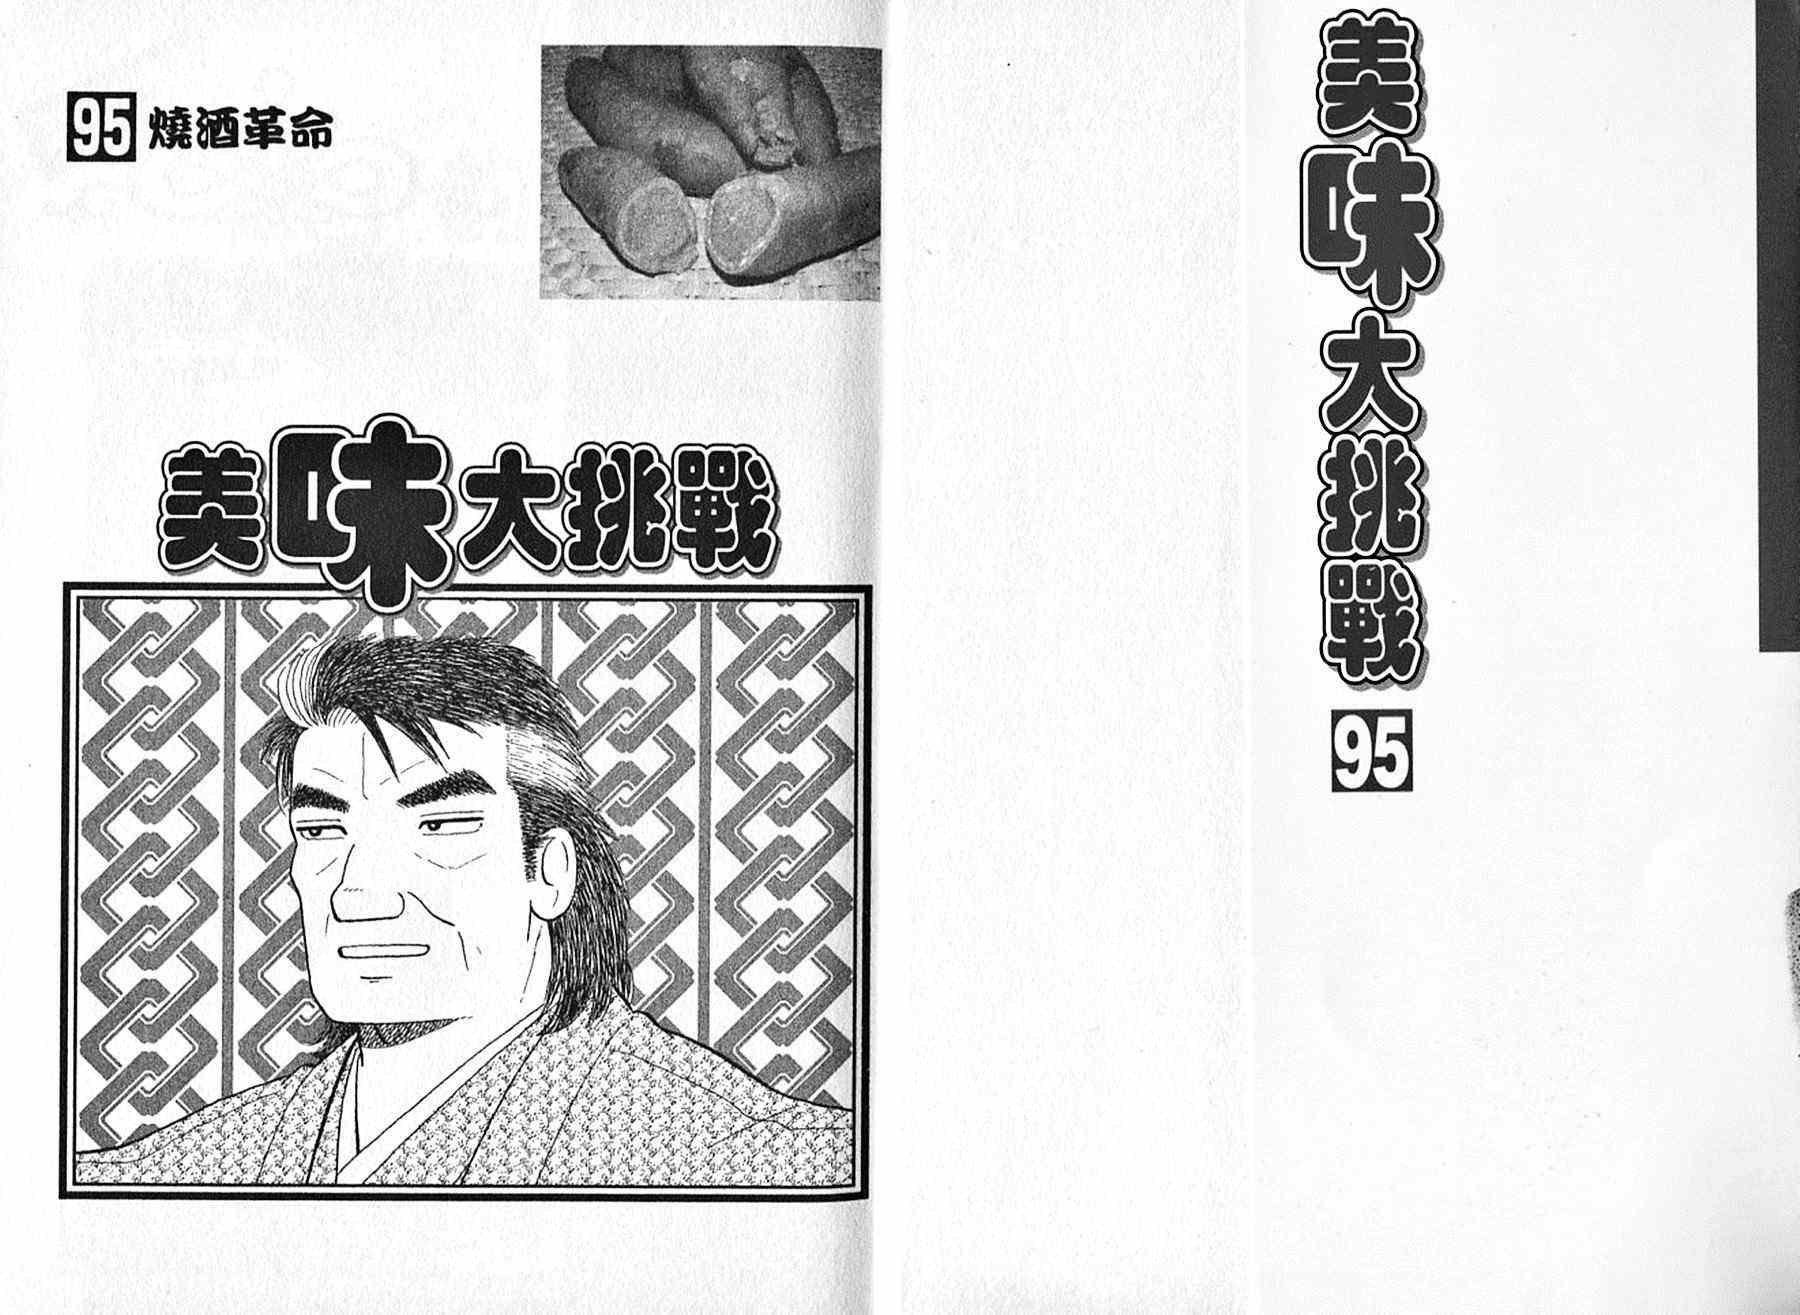 95 燒酒革命
美味大挑戰
美味大挑戰
95